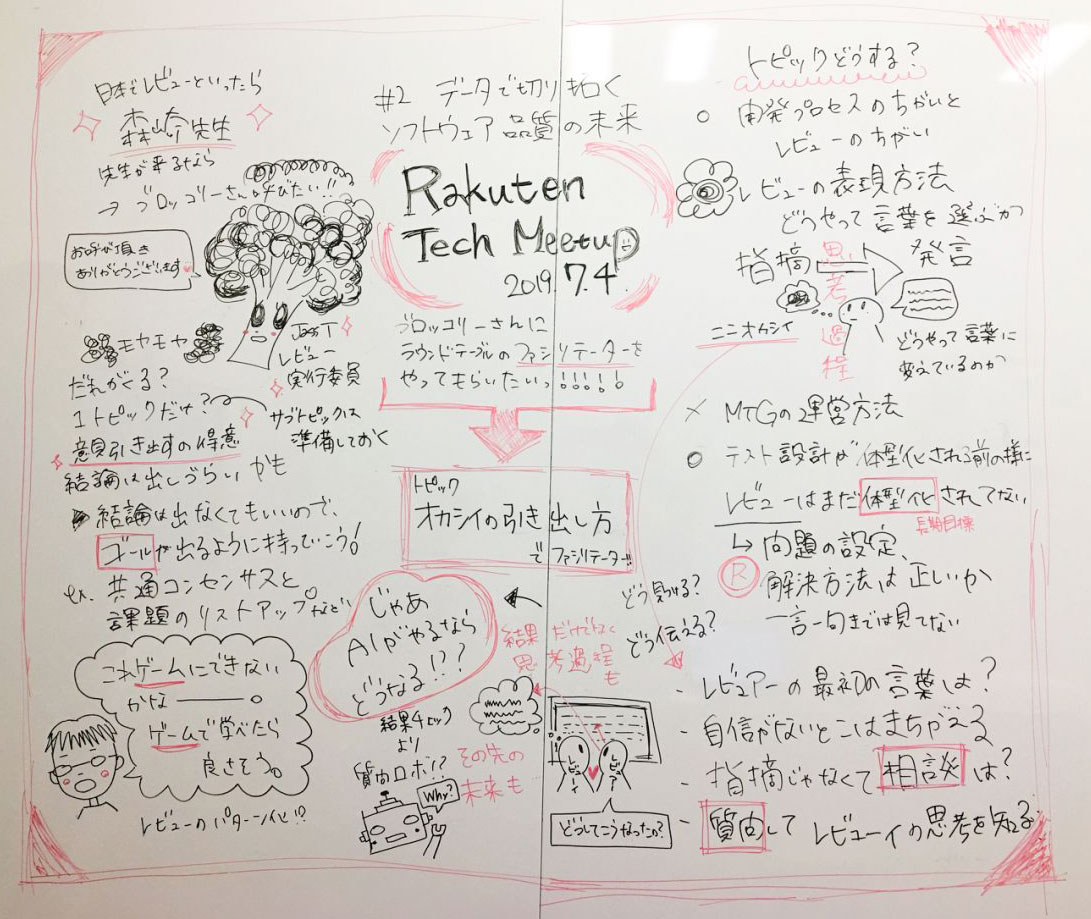 日本でレビューといったら
森崎先生
先生が来るなら
→ ブロッコリーさん呼びたい!!
お呼び頂き
ありがとうございます
モヤモヤ
レビュー
実行委員
だれがくる?
1トピックだけ?
サブトピックは
準備しておく
意見引き出すの得意
結論は出しづらいかも
結論は出なくてもいいので、
ゴールが出るように持っていこう!
ex. 共通コンセンサスと
課題のリストアップなど
これゲームにできない
かなー。
ゲームで学べたら
良さそう。
レビューのパターン化!?
#2 データで切り拓く
ソフトウェア品質の未来
Rakuten
Tech Meetup
2019.7.4.
ブロッコリーさんに
ラウンドテーブルのファシリテーターを
やってもらいたいっ!!!!!
トピック
オカシイの引き出し方
でファシリテーター!!
じゃあ
AIがやるなら
どうなる!??
結果だけでなく
思考過程も
結果チェック
より
質問ロボ!?
その先の
未来も
Why?
レビューイ
レビューア
どうしてこうなったの?
トピックどうする?
○ 開発プロセスのちがいと
レビューのちがい
◎ レビューの表現方法
どうやって言葉を選ぶか
指摘
思考過程
発言
ココオカシイ
どうやって言葉に
変えているのか
× MTGの運営方法
○ テスト設計が体型化される前の様に
レビューはまだ体型化されてない
長期目標
↳ 問題の設定、
R
解決方法は正しいか
一言一句までは見てない
どう見つける?
どう伝える?
- レビュアーの最初の言葉は?
- 自信がないとこはまちがえる
- 指摘じゃなくて相談は?
- 質問してレビューイの思考を知る